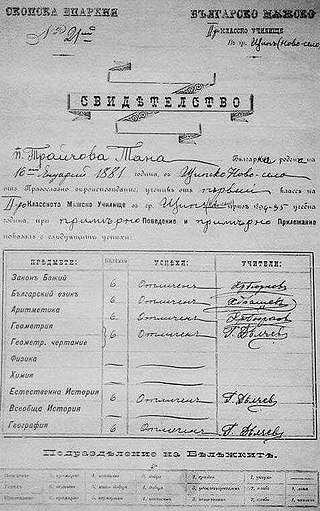 СКОПСКА ЕПАРХИЯ
БЪЛГАРСКО МѪЖСКО
II-РО КЛАССНО УЧИЛИЩЕ
№ 21
Въ гр. Щипъ (Ново-село
СВИДѢТЕЛСТВО
Трайчова Тана Българка родена на
16 Януарий 1881 година, въ Щипско Ново-село
отъ Православно вѣроисповѣдание, ученикъ отъ първий классъ на
II-ро Классното Мѫжско Училище въ гр. Щипъ презъ 1894-95 учебна
година, при примѣрно Поведение и примѣрно Прилежание
показалъ е слѣдующитѣ успѣхи:
ПРЕДМЕТИ: БѢЛѢЖКИ УСПѢХИ: УЧИТЕЛИ:
Законъ Божий 6 Отличенъ
Български езикъ 6 Отличенъ
Аритметика 6 Отличенъ
Геометрия 6 Отличенъ Г. Дѣлчев
Геометр. чертание
Физика
Химия
Естествена История 6 Отличенъ Г. Дѣлчев
Всеобща История
География 6 Отличенъ Г. Дѣлчев
Подраздѣление на Бѣлѣжкитѣ.